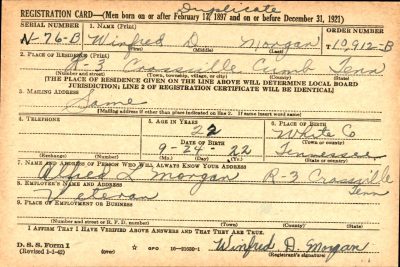 Duplicate
REGISTRATION CARD—(Men born on or after February 17, 1897 and on or before December 31, 1921)
SERIAL NUMBER 1. NAME (Print) ORDER NUMBER
N-76-B Winfred D Morgan T10,912-B
(First) (Middle) (Last)
2. PLACE OF RESIDENCE (Print)
R-3 Crossville Cumb Tenn
(Number and street) (Town, township, village, or city) (County) (State)
[THE PLACE OF RESIDENCE GIVEN ON THE LINE ABOVE WILL DETERMINE LOCAL BOARD
JURISDICTION; LINE 2 OF REGISTRATION CERTIFICATE WILL BE IDENTICAL]
3. MAILING ADDRESS
Same
[Mailing address if other than place indicated on line 2. If same insert word same]
4. TELEPHONE 5. AGE IN YEARS 6. PLACE OF BIRTH
22 White Co
DATE OF BIRTH (Town or county)
9-24-22 Tennessee
(Exchange) (Number) (Mo.) (Day) (Yr.) (State or country)
7. NAME AND ADDRESS OF PERSON WHO WILL ALWAYS KNOW YOUR ADDRESS
Alfred L Morgan R-3 Crossville Tenn
8. EMPLOYER'S NAME AND ADDRESS
Veteran
9. PLACE OF EMPLOYMENT OR BUSINESS
(Number and street or R. F. D. number) (Town) (County) (State)
I AFFIRM THAT I HAVE VERIFIED ABOVE ANSWERS AND THAT THEY ARE TRUE.
D. S. S. Form 1
(Revised 1-1-42) GPO Winfred D. Morgan
(Registrant's signature)